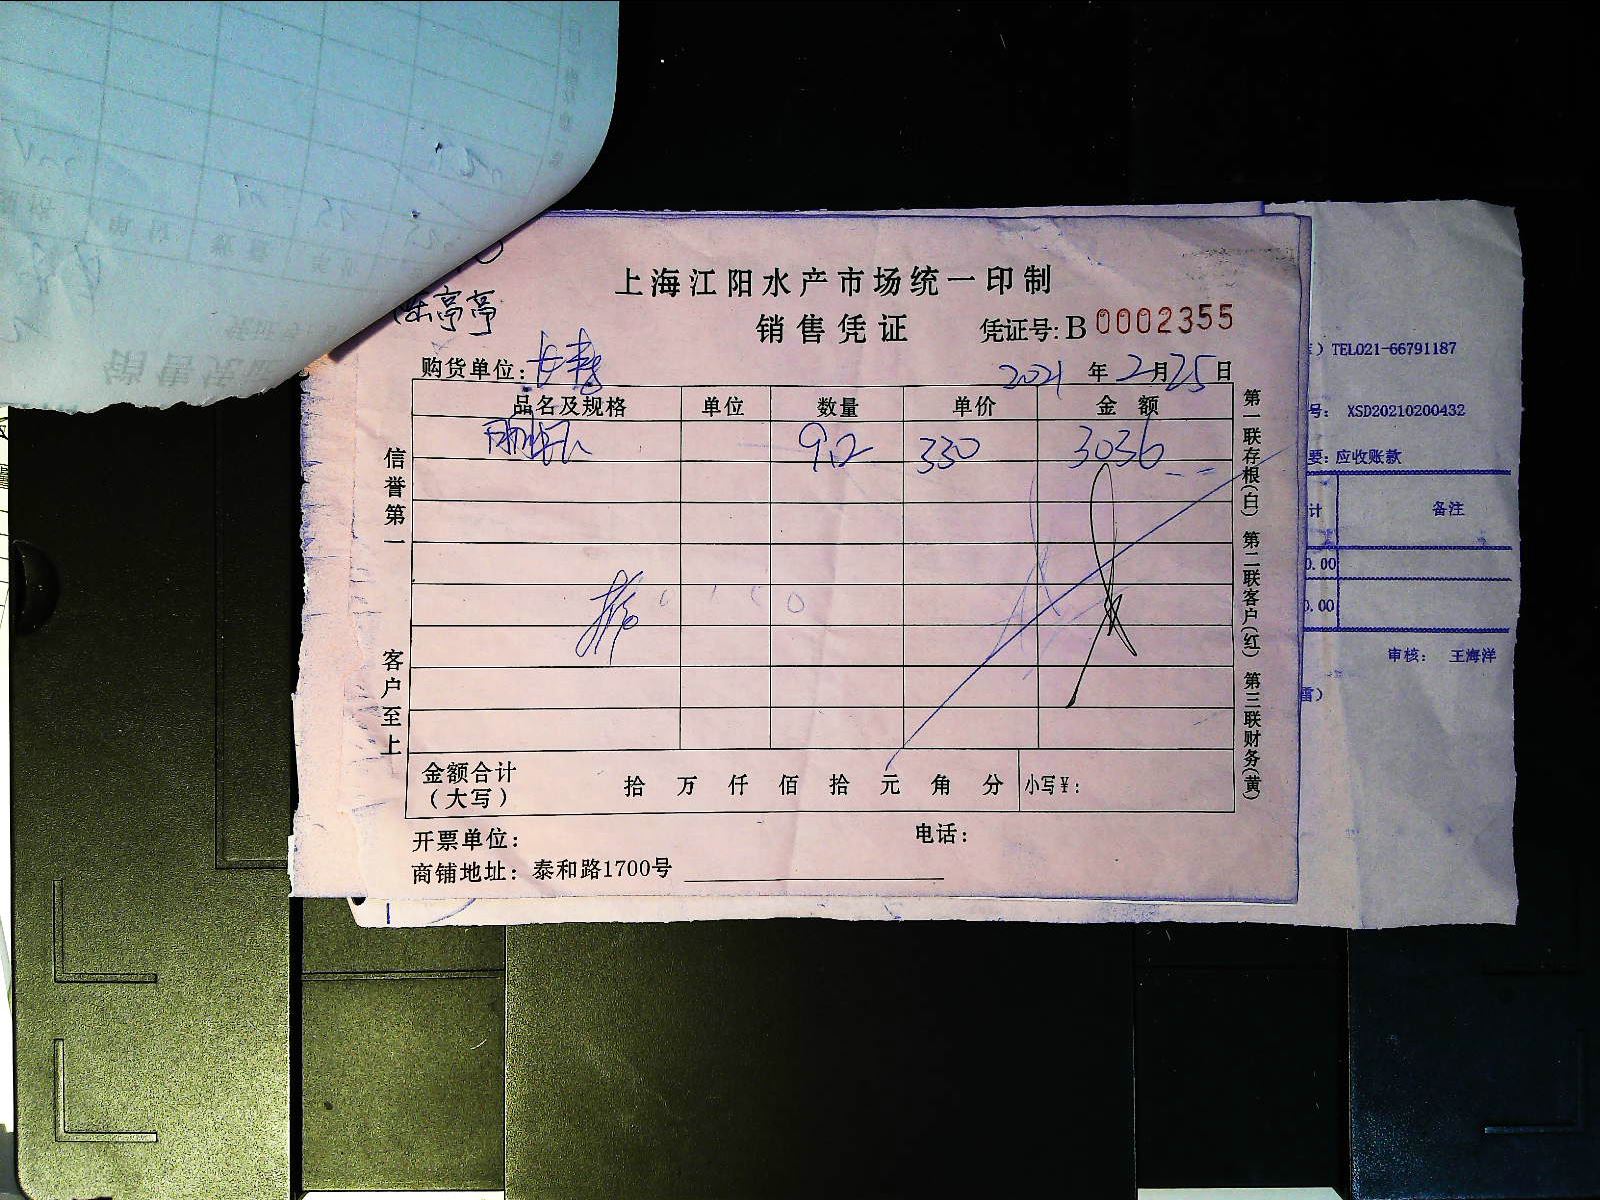 上海江阳水产市场统一印制
销售凭证
凭证号: B 0002355
亭亭
购货单位:
2021 年 2月25日
品名及规格 单位 数量 单价 金额
9.2 330 3036
信誉第一
客户至上
金额合计（大写） 拾 万 仟 佰 拾 元 角 分 小写¥:
开票单位: 电话:
商铺地址: 泰和路1700号
第一联存根(白) 第二联客户(红) 第三联财务(黄)
) TEL021-66791187
号: XSD20210200432
要: 应收账款
计 备注
0.00
0.00
审核: 王海洋
雷)